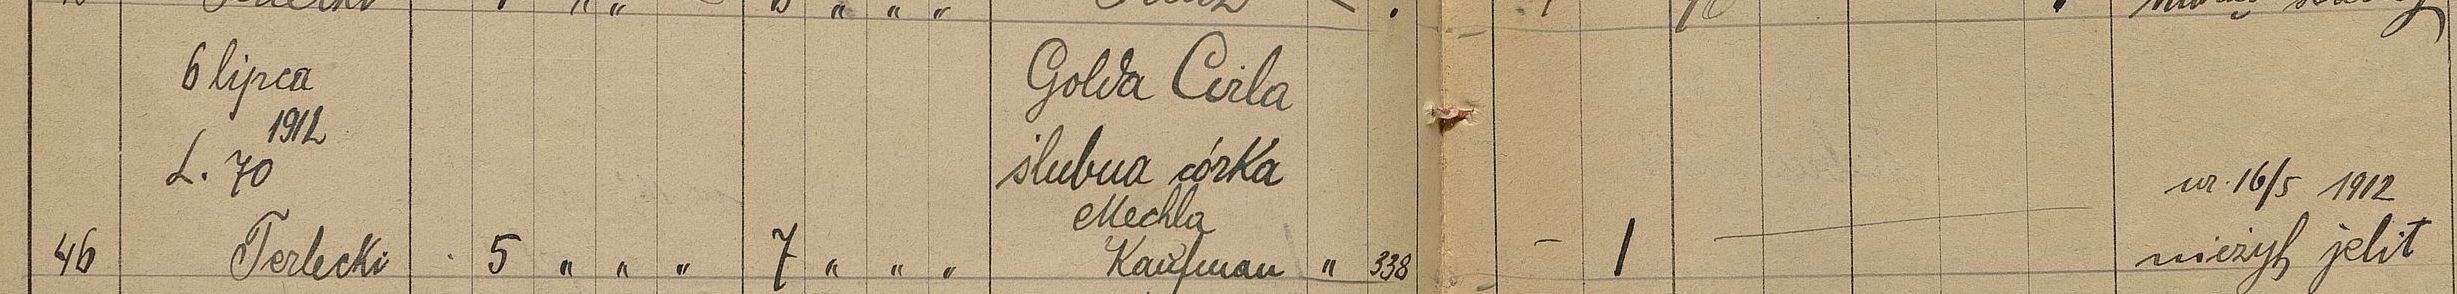 6 lipca
1912
L. 70
46 Terlecki 5 " " " 7 " " "
Golda Cirla
ślubna córka
Mechla
Kaufman " 338
– 1
ur. 16/5 1912
nieżyt jelit